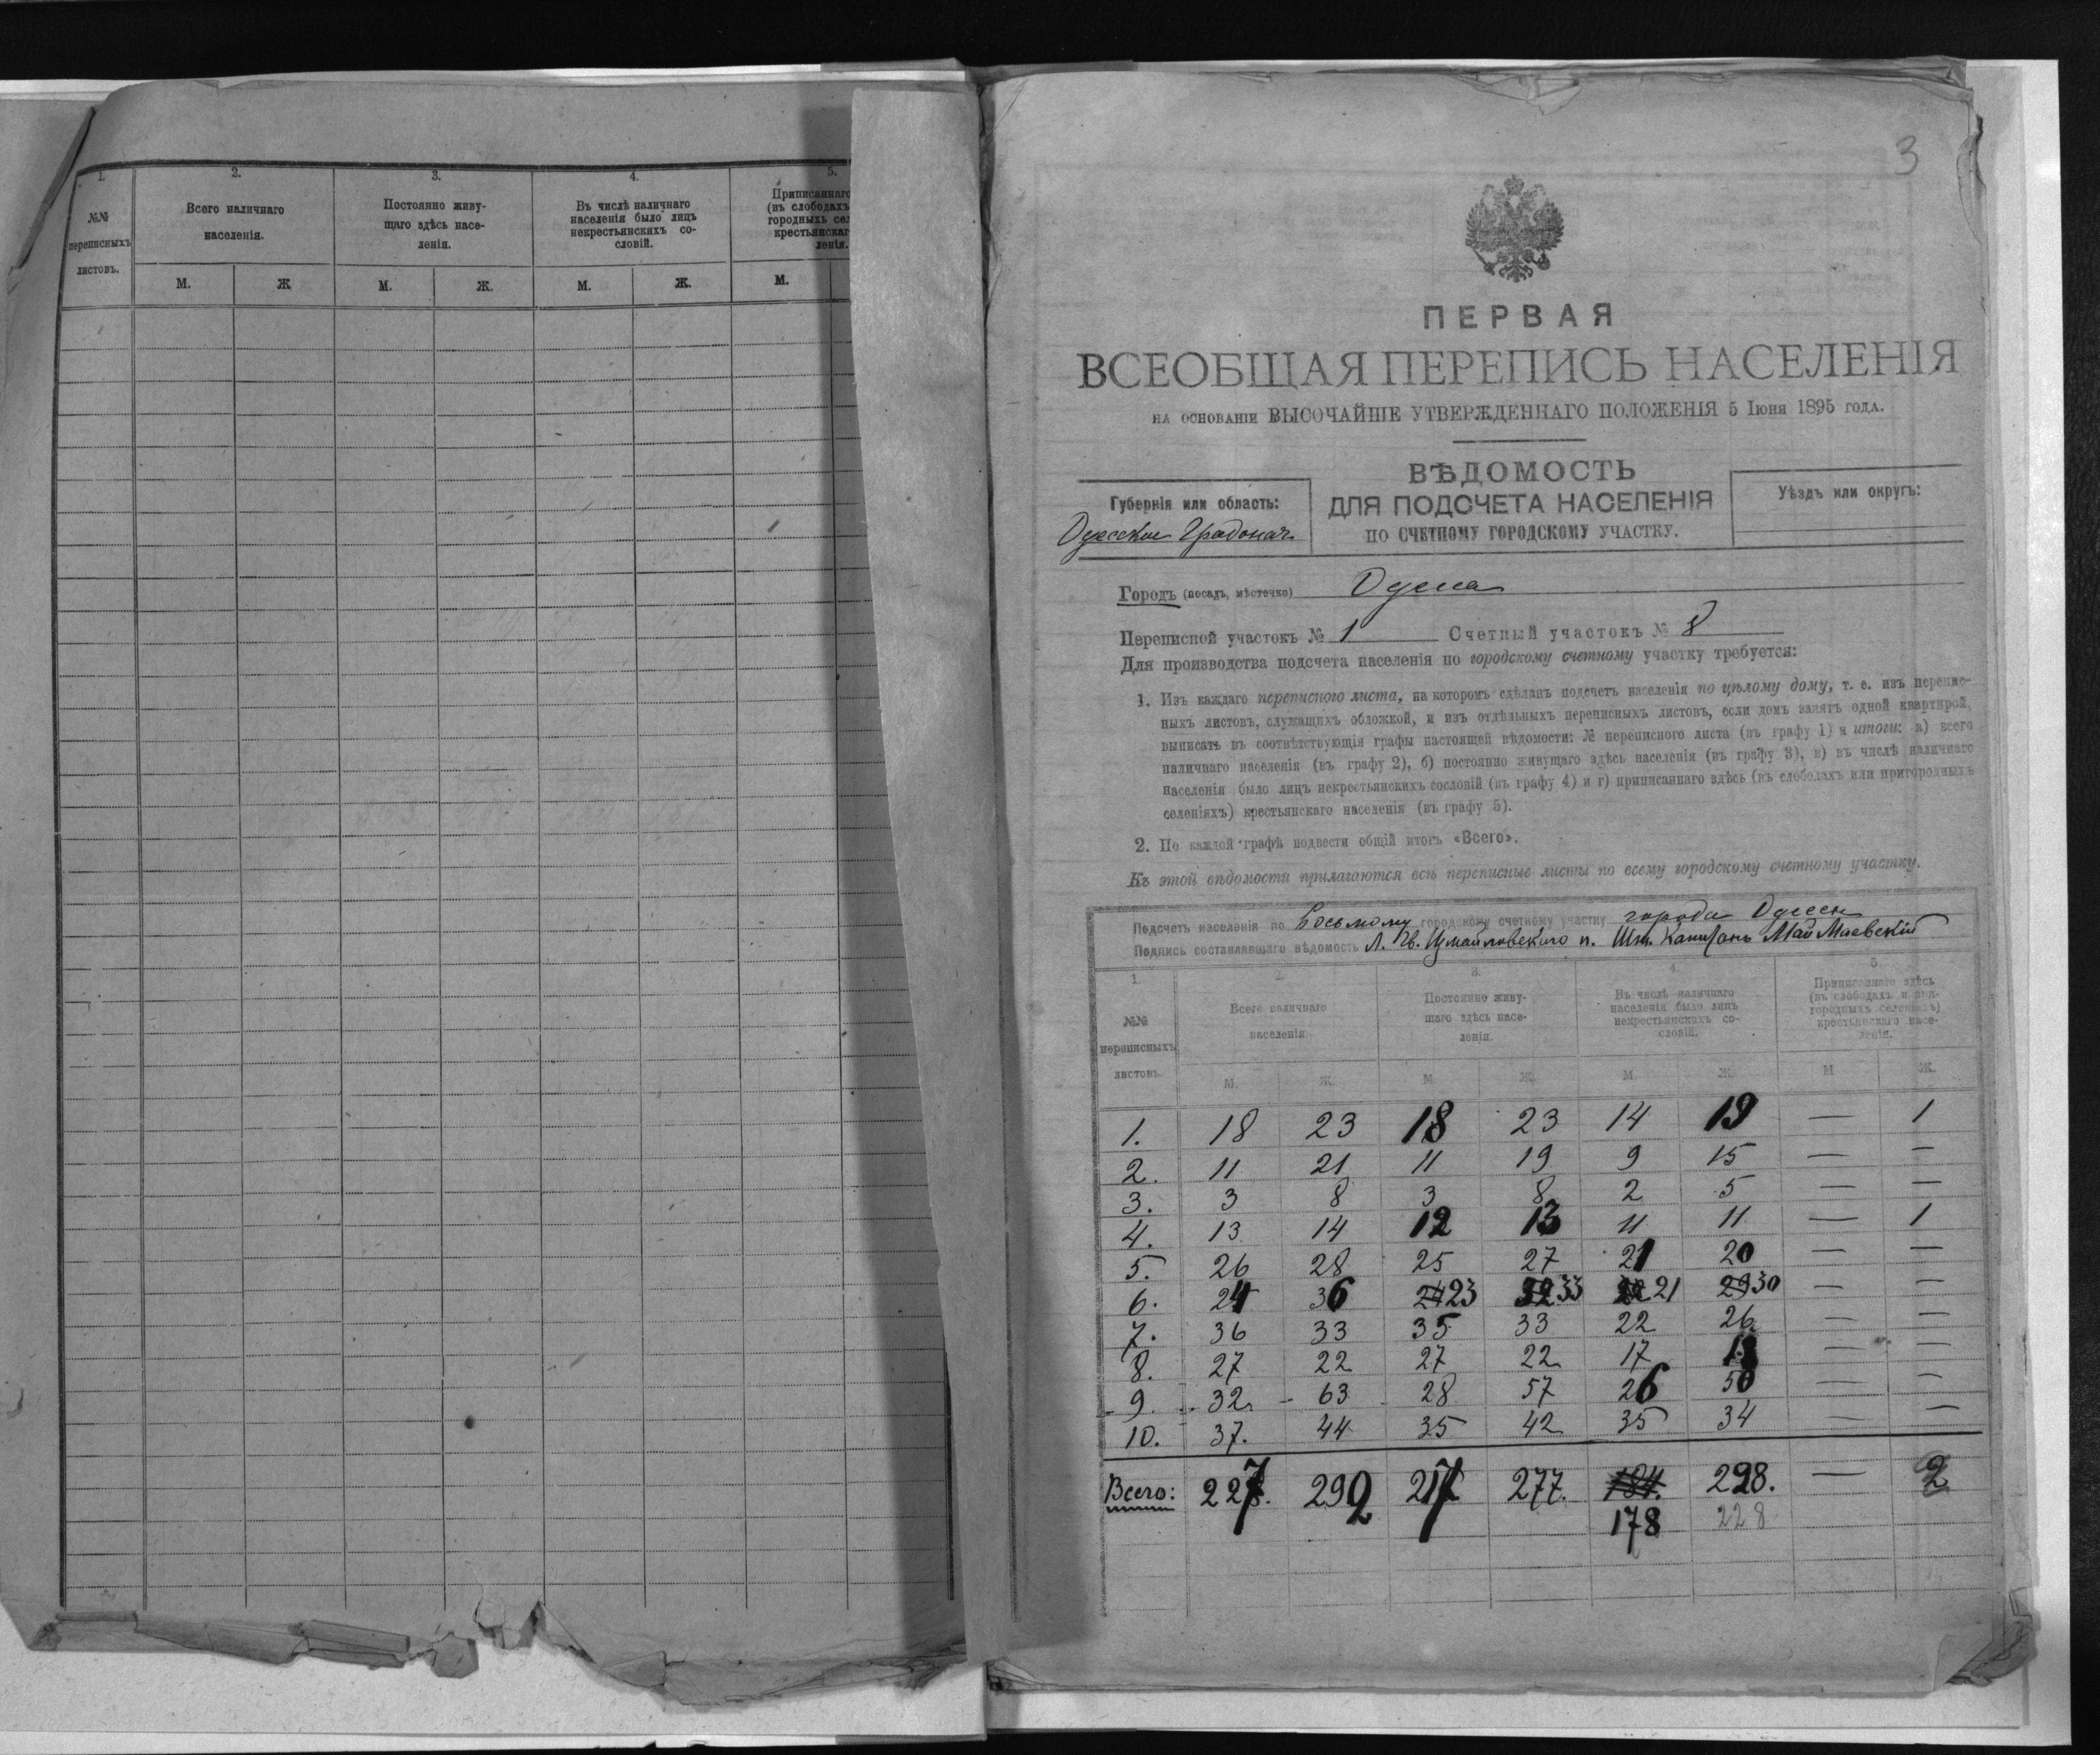 1. 2. 3. 4. 5.
№№ переписныхъ листовъ.
Всего наличнаго населенія.
Постоянно живу-
щаго здѣсь насе-
ленія.
Въ числѣ наличнаго
населенія было лицъ
некрестьянскихъ со-
словій.
Приписаннаго
(въ слободахъ
городныхъ сел
крестьянскаг
ленія.
М. Ж М. Ж. М. Ж. М.
3
ПЕРВАЯ
ВСЕОБЩАЯ ПЕРЕПИСЬ НАСЕЛЕНІЯ
НА ОСНОВАНІИ ВЫСОЧАЙШЕ УТВЕРЖДЕННАГО ПОЛОЖЕНІЯ 5 Іюня 1895 ГОДА.
Губернія или область:
Одесское Градонач.
ВѢДОМОСТЬ
ДЛЯ ПОДСЧЕТА НАСЕЛЕНІЯ
ПО СЧЕТНОМУ ГОРОДСКОМУ УЧАСТКУ.
Уѣздъ или округъ:
Городъ (посадъ, мѣстечко) Одесса
Переписной участокъ № 1 Счетный участокъ № 8
Для производства подсчета населенія по городскому счетному участку требуется:
1. Изъ каждаго переписного листа, на которомъ сдѣланъ подсчетъ населенія по цѣлому дому, т. е. изъ перепис-
ныхъ листовъ, служащихъ обложкой, и изъ отдѣльныхъ переписныхъ листовъ, если домъ занятъ одной квартирой,
выписать въ соотвѣтствующія графы настоящей вѣдомости: № переписного листа (въ графу 1) и итоги: а) всего
наличнаго населенія (въ графу 2), б) постоянно живущаго здѣсь населенія (въ графу 3), в) въ числѣ наличнаго
населенія было лицъ некрестьянскихъ сословій (въ графу 4) и г) приписаннаго здѣсь (въ слободахъ или пригородныхъ
селеніяхъ) крестьянскаго населенія (въ графу 5).
2. По каждой графѣ подвести общій итогъ «Всего».
Къ этой вѣдомости прилагаются всѣ переписные листы по всему городскому счетному участку.
Подсчетъ населенія по Восьмому городскому счетному участку города Одессы
Подпись составлявшаго вѣдомость Л. Гв. Измайловскаго п. Шт. Капитанъ Май Маевскій
1. 2. 3. 4. 5.
№№ переписныхъ листовъ.
Всего наличнаго населенія
Постоянно живу-
щаго здѣсь насе-
ленія.
Въ числѣ наличнаго
населенія было лицъ
некрестьянскихъ со-
словій.
Приписаннаго здѣсь
(въ слободахъ и при-
городныхъ селеніяхъ)
крестьянскаго насе-
ленія.
М. Ж. М. Ж. М. Ж. М Ж.
1. 18 23 18 23 14 19 — 1
2. 11 21 11 19 9 15 — —
3. 3 8 3 8 2 5 — —
4. 13 14 12 13 11 11 — 1
5. 26 28 25 27 21 20 — —
6. 24 36 24 23 32 33 21 29 30 — —
7. 36 33 35 33 22 26 — —
8. 27 22 27 22 17 18 — —
9. 32 63 28 57 26 50 — —
10. 37. 44 35 42 35 34 — —
Всего: 227. 292 217 277. 184. 228. — 2
178 228